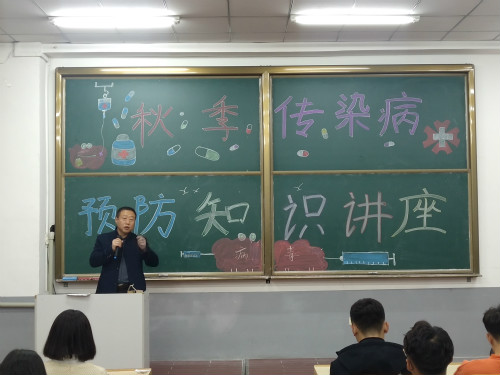 秋季传染病
预防知识讲座
病毒